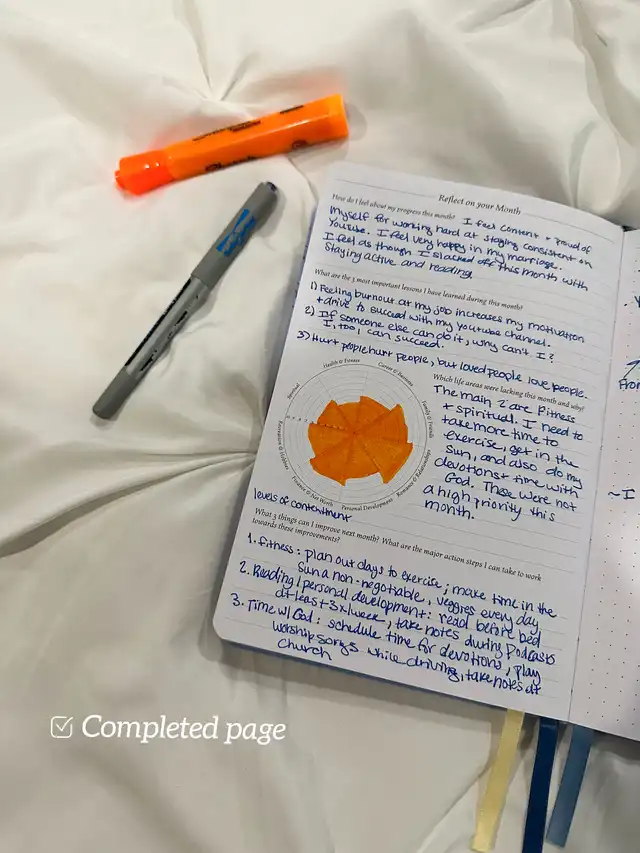 Reflect on your Month
How do I feel about my progress this month? I feel content + proud of
myself for working hard at staying consistent on
Youtube. I feel very happy in my marriage.
I feel as though I slacked off this month with
staying active and reading.
What are the 3 most important lessons I have learned during this month?
1) Feeling burnout at my job increases my motivation
+ drive to succeed with my youtube channel.
2) If someone else can do it, why can't I?
I, too, can succeed.
3) Hurt people hurt people, but loved people love people.
Health & Fitness
Career & Business
Family & Friends
Romance & Relationships
Personal Development
Finance & Net Worth
Spiritual
levels of contentment
Which life areas were lacking this month and why?
The main 2 are fitness
+ spiritual. I need to
take more time to
exercise, get in the
sun, and also do my
devotions + time with
God. These were not
a high priority this
month.
What 3 things can I improve next month? What are the major action steps I can take to work
towards these improvements?
1. Fitness: plan out days to exercise; make time in the
sun a non-negotiable, veggies every day
2. Reading / personal development: read before bed
at least 3x/week, take notes during Podcasts
3. Time w/ God: schedule time for devotions, play
worship songs while driving, take notes at
church
From
~I
Completed page